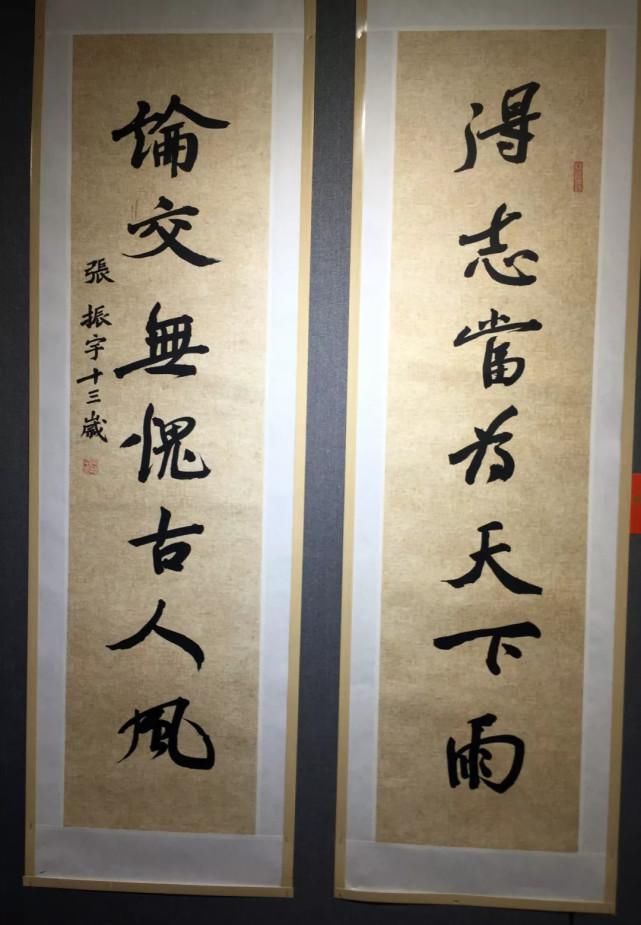 得志當為天下雨
論交無愧古人風
張振宇十三歲